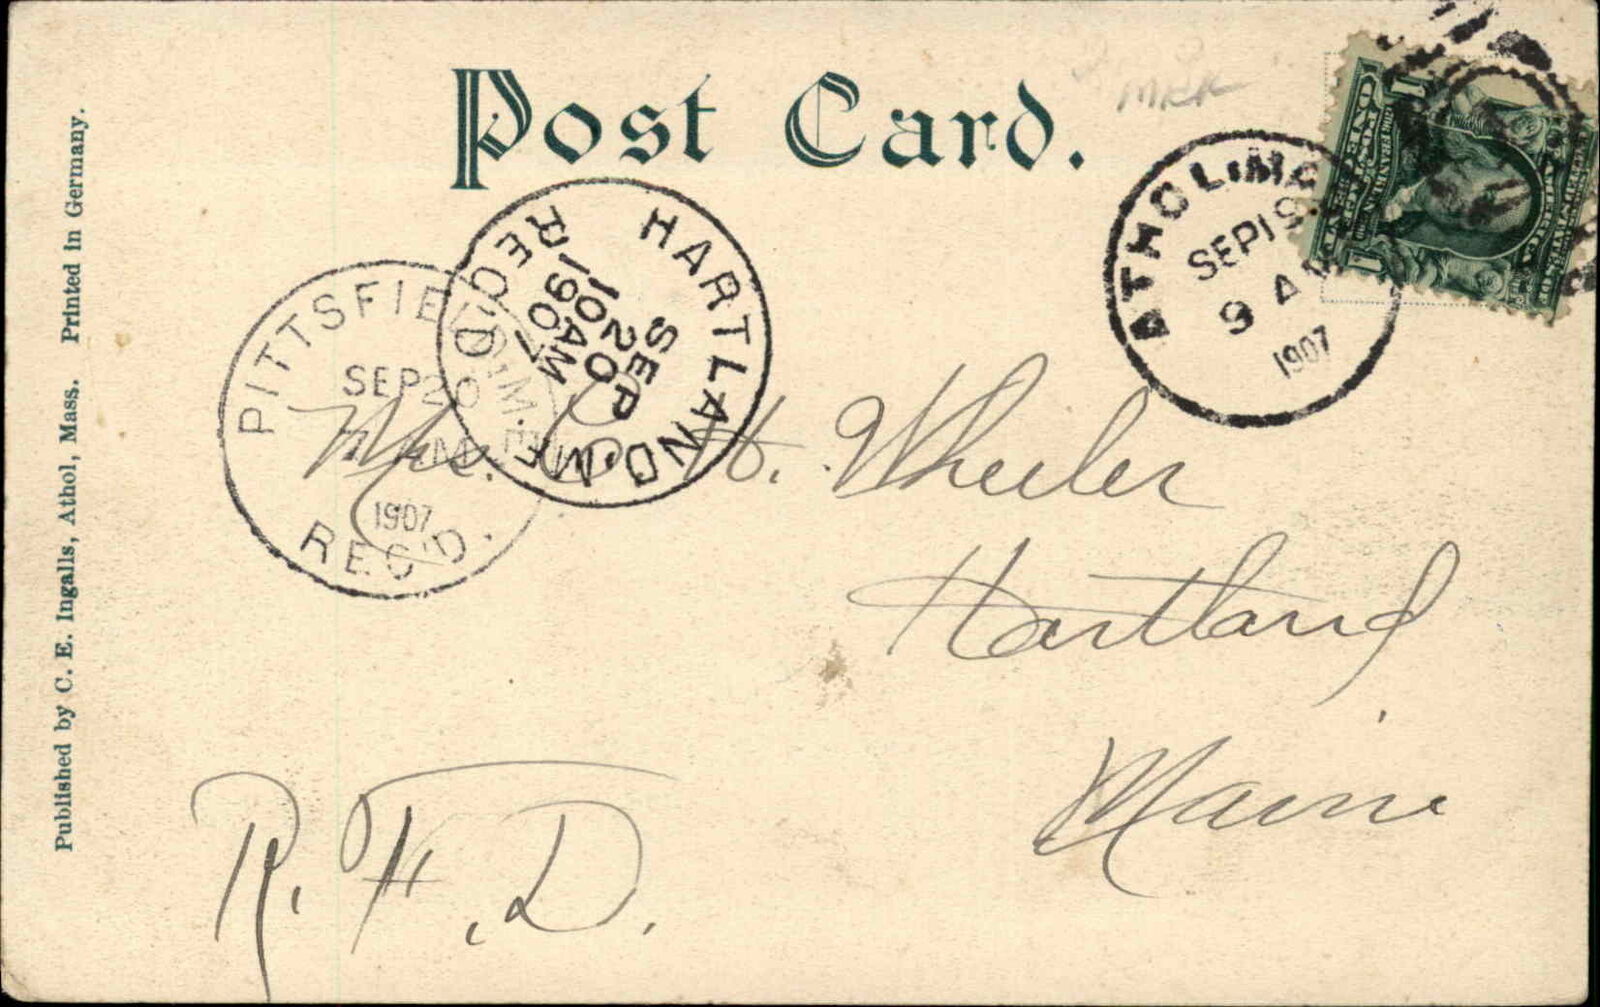 Post Card.
ATHOL, MA
SEP 19
9 AM
1907
HARTLAND, ME.
SEP
20
10 AM
1907
REC'D
PITTSFIELD, ME.
SEP 20
AM
1907
REC'D.
Mrs. H. Wheeler
Hartland,
Maine
R. F. D.
Published by C. E. Ingalls, Athol, Mass. Printed in Germany.